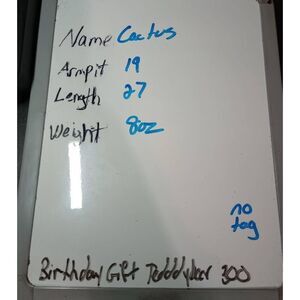 Name Cactus
Armpit 19
Length 27
Weight 8oz
no
tag
Birthday Gift Tedddybear 300